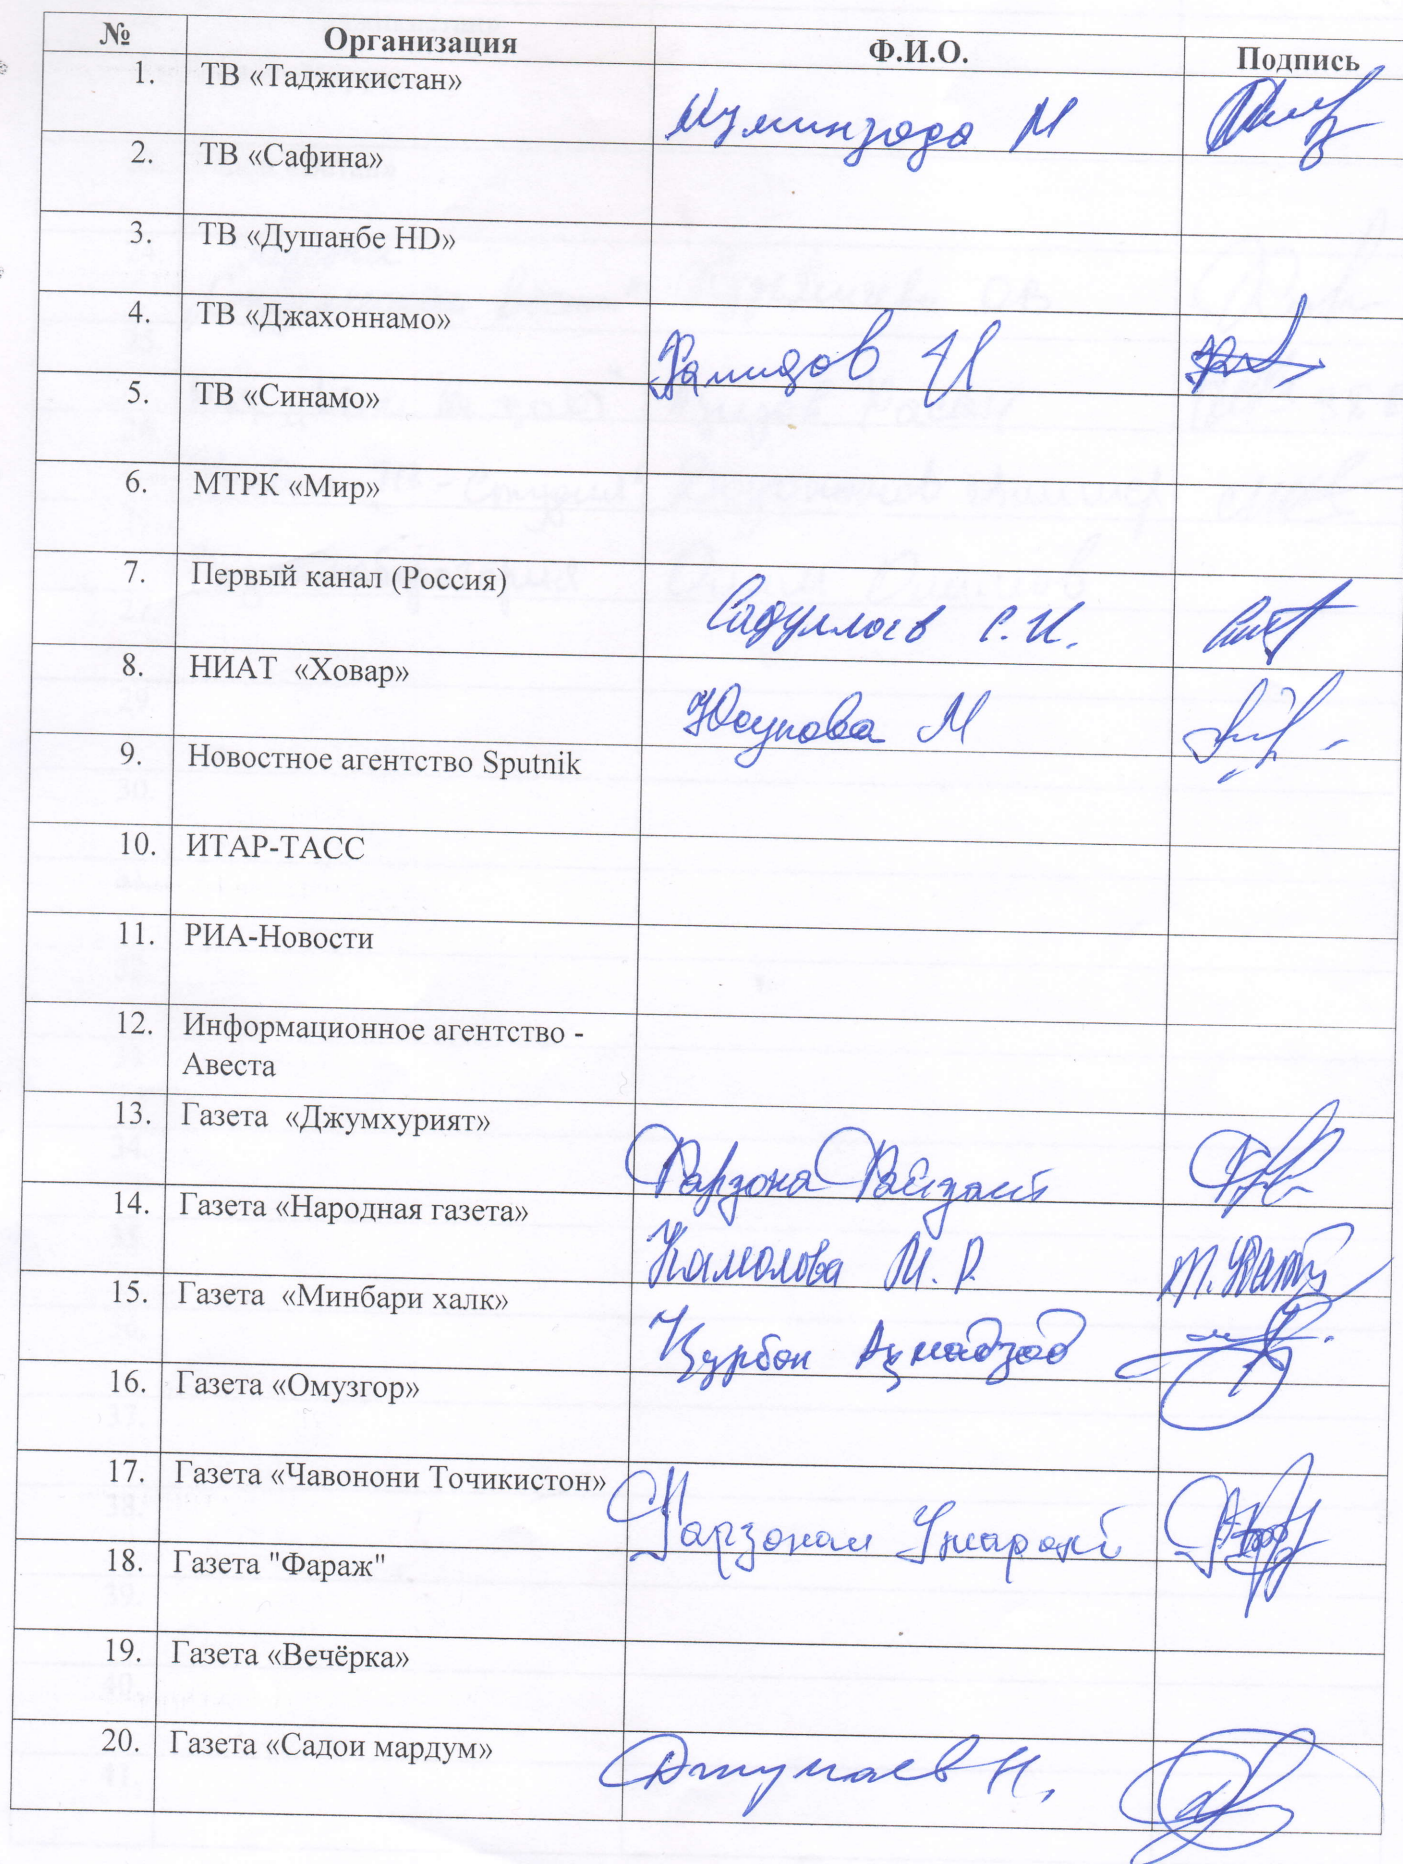 № Организация Ф.И.О. Подпись
1. ТВ «Таджикистан» Муминзода М
2. ТВ «Сафина»
3. ТВ «Душанбе HD»
4. ТВ «Джахоннамо» Хамидов И
5. ТВ «Синамо»
6. МТРК «Мир»
7. Первый канал (Россия) Садуллоев С.И.
8. НИАТ «Ховар» Юсупова М
9. Новостное агентство Sputnik
10. ИТАР-ТАСС
11. РИА-Новости
12. Информационное агентство -
Авеста
13. Газета «Джумхурият» Фарзона
14. Газета «Народная газета» Камолова М.Р.
15. Газета «Минбари халк» Қурбон Аҳмадзод
16. Газета «Омузгор»
17. Газета «Чавонони Точикистон» Фарзонаи
18. Газета "Фараж"
19. Газета «Вечёрка»
20. Газета «Садои мардум» Джумаев Н.